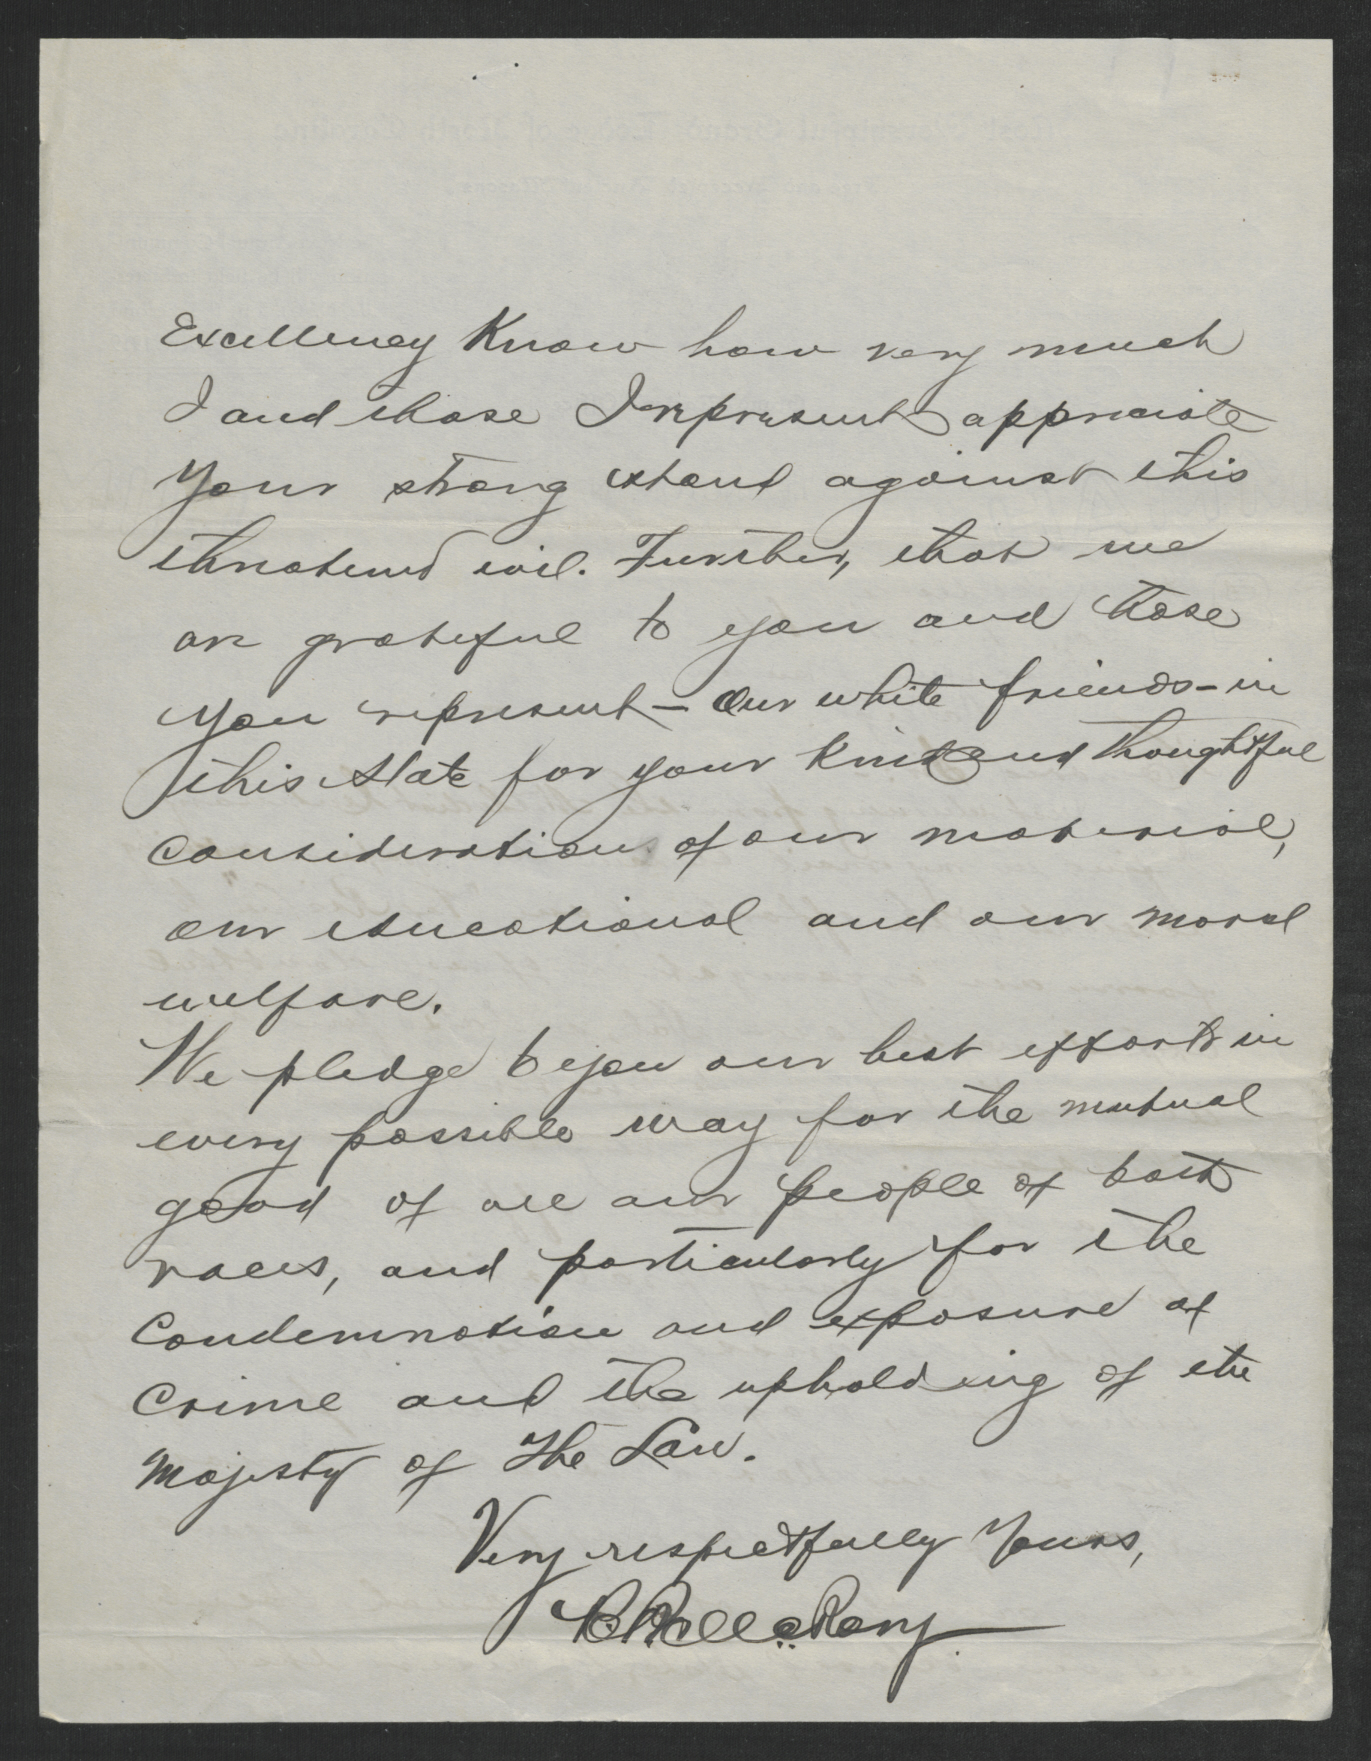 Excellency Know how very much
I and those I represent appreciate
your strong stand against this
threatened evil. Further, that we
are grateful to you and those
you represent – our white friends – in
this State for your kind and thoughtful
consideration of our material,
our educational and our moral
welfare.
We pledge to you our best efforts in
every possible way for the mutual
good of all our people of both
races, and particularly for the
condemnation and exposure of
crime and the upholding of the
majesty of The Law.
Very respectfully Yours,